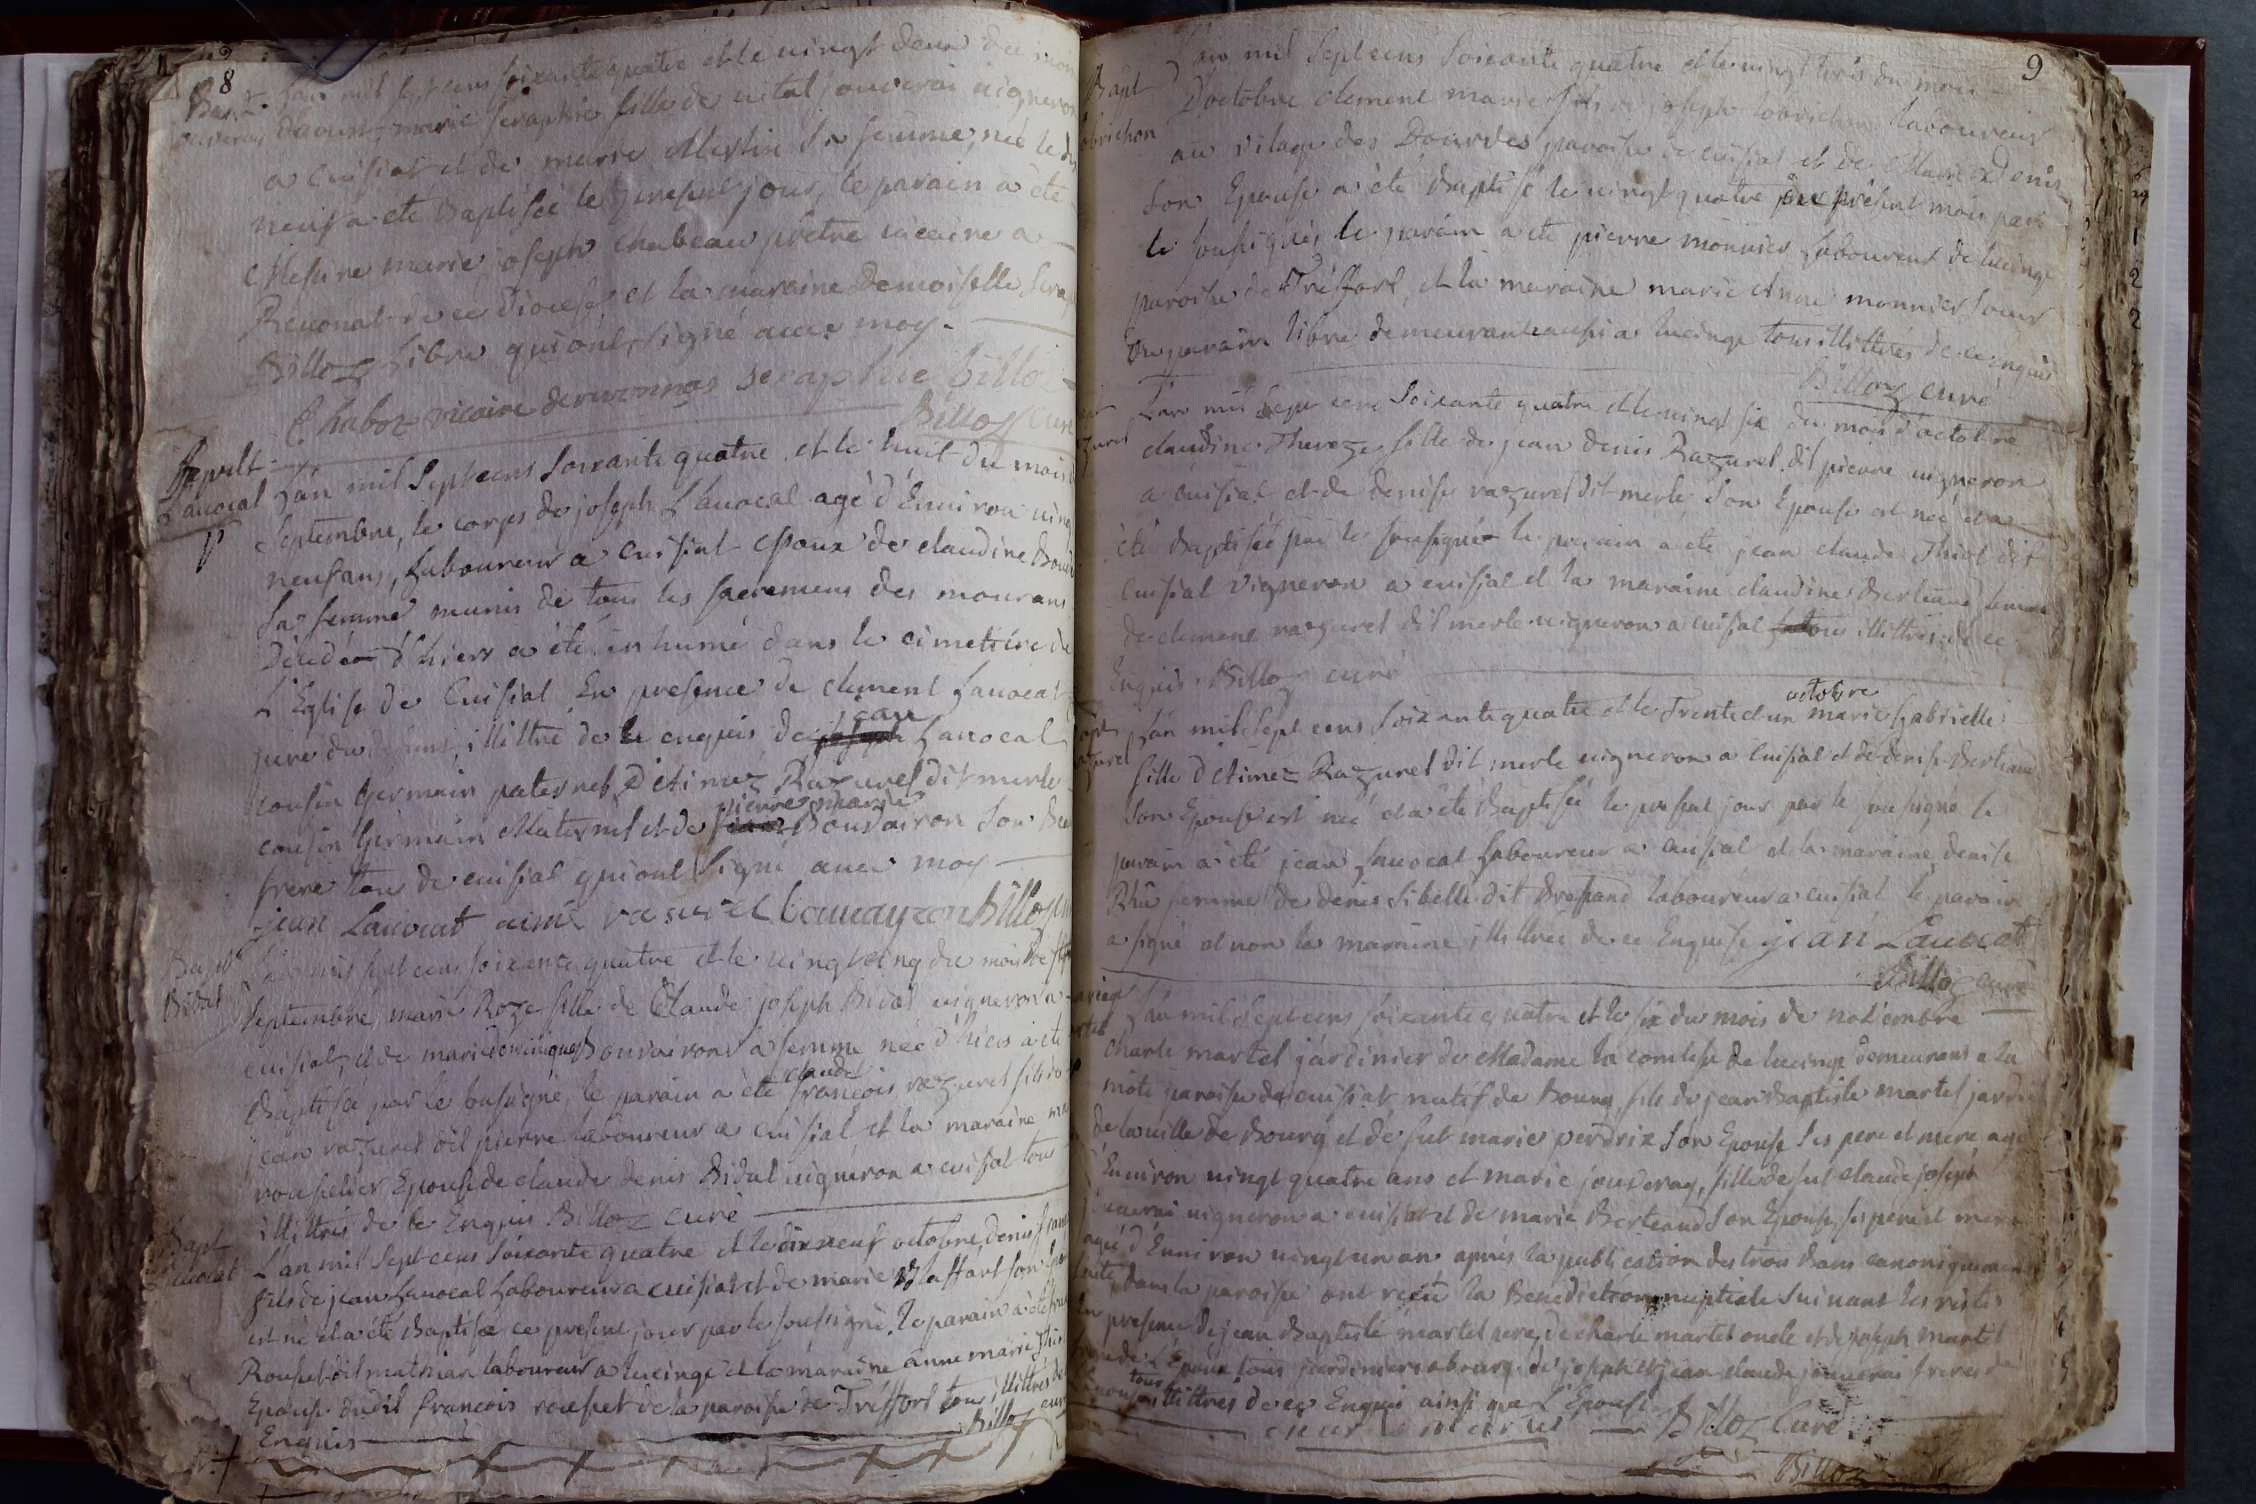 8
Bapt. L'an mil sept cens soixante quatre et le vingt deux du mois
jouveray daoust marie seraphie fille de vital jouverai vigneron
a cuisiat et de marie Mestre sa femme, née le dix
neuf a été baptisée le present jour, le parain a été
Messire marie joseph chabeau prêtre vicaire a
Revonat de ce diocese, et la maraine Demoiselle Serap
Billoz Libre qui ont signé avec moy.
Chaboz vicaire de revonnas seraphie billoz
Billoz curé
Sepult. L'an mil sept cens soixante quatre et le huit du mois d
Lauocat septembre, le corps de joseph Lauocat agé d'Environ ving
neuf ans, Laboureur a Cuisiat Epoux de claudine Bouv
sa femme munis de tous les sacremens des mourans
Décédé d'hierr a été inhumé dans le cimetiére de
L'Eglise de Cuisiat En presence de clement Lauocat
pere du defunt illittré de ce enquis de jean Lauocal
cousin Germain paternel, d'Aimez Razurel dit merle
cousin Germain Maternel et de pierre marie Bouvairon son Beau
frere tous de cuisiat qui ont signé avec moy
jean Lauocat aimé rasurel bouuayron Billoz curé
Bapt L'an mil sept cens soixante quatre et le vingt cinq du mois de
Bidal septembre, marie Roze fille de Claude joseph Bidal vigneron a
cuisiat, et de marie dominique Bouvairon sa femme née d'hiers a été
Baptisé par le sousigné, le parain a été claude francois razurel fils de
jean razurel dit pierre laboureur a cuisiat et la maraine ma
rouselier Epouse de claude denis Bidal vigneron a cuisiat tous
illittrés de ce Enquis Billoz curé
Bapt L'an mil sept cens soixante quatre et le dix neuf octobre, denis fran
Lauocat fils de jean Lauocal Laboureur a cuisiat et de marie Blaffart son Epou
est né et a été Baptisé ce present jour par le soussigné. le parain a été fran
Rousset dit mathian laboureur a lucinge et la maraine anne marie Thi
Epouse dudit francois rousset de la paroisse de Tréffort tous illittrés de ce
Enquis Billoz curé
9
Bapt L'an mil sept cens soixante quatre et le vingt trois du mois
Cobrichon D'octobre clement marie fils de joseph cobrichon laboureur
au vilage des Dourdes paroisse de cuisiat et de Marie Denis
son Epouse a été baptisé le vingt quatre du present mois par
le sousigné, le parain a été pierre monnier Laboureur de lucinge
paroisse de Tréffort, et la maraine marie Anne monnier soeur
du parain libre demeurante aussi a lucinge tous illittrés de ce enquis
Billoz curé
L'an mil sept cens soixante quatre et le vingt six du mois d'octobre
claudine Thereze fille de jean denis Razurel dit pierre vigneron
a cuisiat et de denise razurel dit merle son Epouse est née et a
été baptisée par le sousigné le parain a été jean claude Thiot dit
cuisiat Vigneron a cuisiat et la maraine claudine Berteaud femme
de clement razurel dit merle vigneron a cuisiat tous illittrés de ce
Enquis Billoz curé
L'an mil sept cens soixante quatre et le Trente et un octobre marie Gabrielle
fille d'Aimez Razurel dit merle vigneron a Cuisiat et de denise Berteaud
son Epouse est née et a été Baptisée le present jour par le sousigné le
parain a été jean Lauocat Laboureur a cuisiat et la maraine denise
Rhû femme de denis sibelle dit Brossand laboureur a cuisiat le parain
a signé et non la maraine illittrée de ce Enquise jean Lauocat
Billoz curé
L'an mil sept cens soixante quatre et le six du mois de novembre
charle martel jardinier de Madame la comtesse de lucinge demeurans a la
mote paroisse de cuisiat natif de Bourg, fils de jean Baptiste martel jardi
de la ville de Bourg et de fut marie perdrix son Epouse ses pere et mere agé
d'Environ vingt quatre ans et marie jouveray, fille de fut claude joseph
jouverai vigneron a cuisiat et de marie Berteaud son Epouse, ses pere et mere
agée d'Environ vingt un an après la publication des trois bans canoniquement
faite dans la paroisse ont reçu la Benediction nuptiale suivant les rites
En presence de jean Baptiste martel pere, de charle martel oncle et de joseph martel
de L'Epoux tous jardiniers a bourg, de joseph et jean claude jouverai freres de
tous illittres de ce Enquis ainsi que L'Epouse
Billoz Curé
Billoz